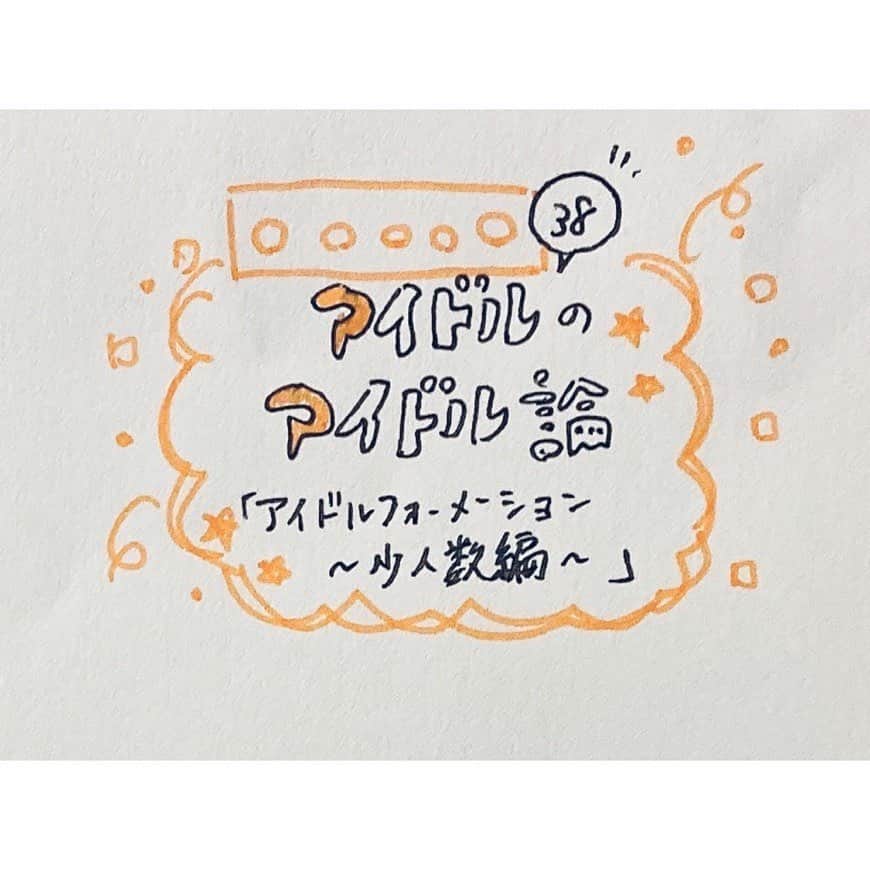 38
アイドルの
アイドル論
「アイドルフォーメーション
~少人数編~」